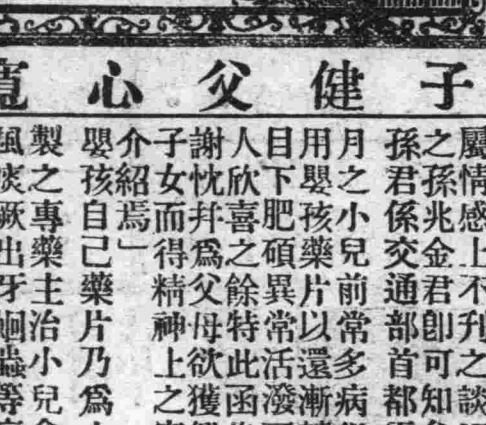 子健父心寬
屬情感上不刋之談
之孫兆金君卽可知
孫君係交通部首都
月之小兒前常多病
用嬰孩藥片以還漸
目下肥碩異常活潑
人欣喜之餘特此函
謝忱幷爲父母欲獲
子女而得精神上之
介紹焉」
嬰孩自己藥片乃爲
製之專藥主治小兒
風痰厥出牙蛔蟲等